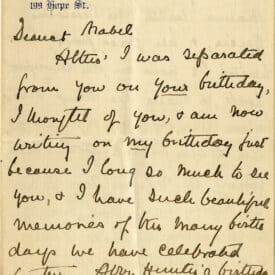 199 Hope St.
Dearest Mabel
Altho' I was separated
from you on your birthday,
I thought of you, & am now
writing on my birthday just
because I long so much to see
you, & I have such beautiful
memories of the many birth
days we have celebrated
birthday